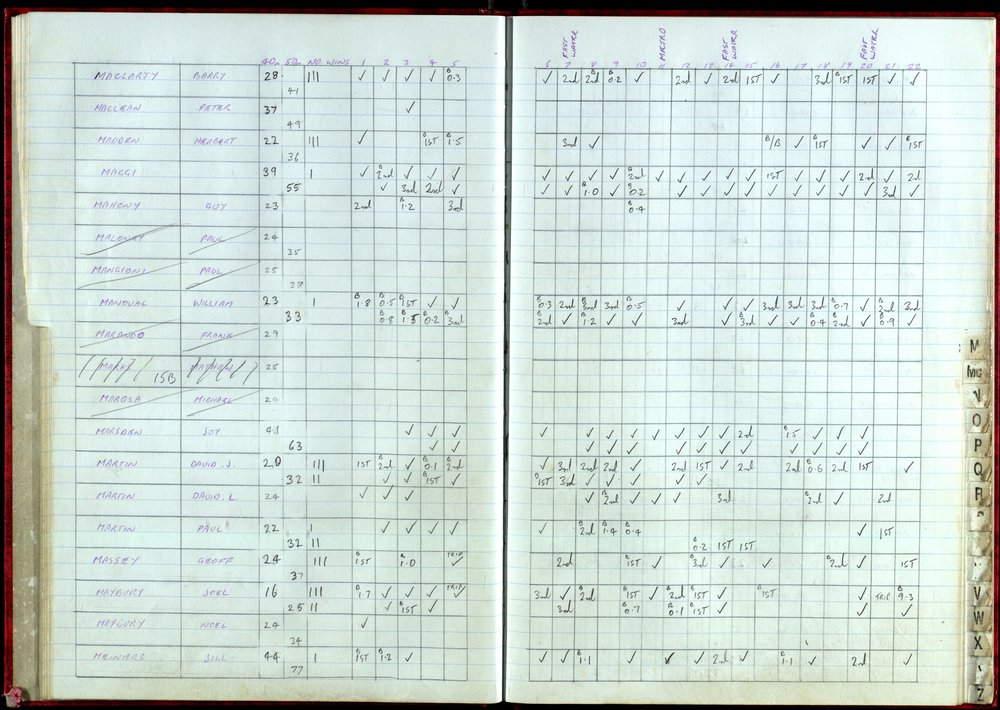 FAST WATER METRO FAST WATER FAST WATER
40m 50m NO WINS 1 2 3 4 5 6 7 8 9 10 11 12 13 14 15 16 17 18 19 20 21 22
MACLARTY BARRY 28 III ✓ ✓ ✓ ✓ B 0.3 ✓ 2nd B 2nd B 0.2 ✓ 2nd ✓ 2nd 1ST ✓ 3rd B 1ST 1ST ✓ ✓
41
MACLEAN PETER 37 ✓
49
MADDEN HERBERT 22 III ✓ B 1ST B 1.5 3rd ✓ B/B ✓ B 1ST ✓ ✓ B 1ST
36
MAGGI 39 I ✓ B 2nd ✓ ✓ ✓ ✓ ✓ ✓ ✓ B 2nd ✓ ✓ ✓ ✓ ✓ 1ST ✓ ✓ ✓ 2nd ✓ 2nd
55 ✓ 3rd 2nd ✓ ✓ ✓ B 1.0 ✓ B 0.2 ✓ ✓ ✓ ✓ ✓ ✓ ✓ ✓ ✓ 3rd ✓
MAHONY GUY 23 2nd B 1.2 3rd B 0.4
MALONEY PAUL 24
35
MANGIONI PAUL 25
38
MANOUAL WILLIAM 23 I B 1.8 B 0.5 B 1ST ✓ ✓ B 0.3 2nd B 3rd 3rd B 0.5 ✓ ✓ ✓ 3rd 3rd 3rd B 0.7 ✓ B 2nd 3rd
33 B 0.8 B 1.5 B 0.2 B 3rd B 2nd ✓ B 1.2 ✓ ✓ 3rd ✓ B 3rd ✓ ✓ B 0.4 B 2nd ✓ B 0.9 ✓
MARANDO FRANK 29
MARKS MATHEW 25
15B
MAROSA MICHAEL 20
MARSDEN JOY 41 ✓ ✓ ✓ ✓ ✓ ✓ ✓ ✓ ✓ ✓ ✓ 2nd B 1.5 ✓ ✓ ✓
63 ✓ ✓ ✓ ✓ ✓ ✓ ✓ ✓ ✓ ✓ ✓ ✓ ✓
MARTIN DAVID.J. 20 III 1ST B 2nd ✓ B 0.1 B 2nd ✓ 3rd 2nd 2nd ✓ 2nd 1ST ✓ 2nd 2nd B 0.6 2nd 1ST ✓
32 II ✓ ✓ B 1ST ✓ B 1ST 3rd ✓ ✓ ✓ ✓ ✓
MARTIN DAVID.L. 24 ✓ ✓ ✓ ✓ B 2nd ✓ ✓ ✓ 3rd B 2nd ✓ 2nd
MARTIN PAUL 22 I ✓ ✓ ✓ ✓ ✓ B 2nd B 1.4 B 0.4 ✓ 1ST
32 II B 0.2 1ST 1ST
MASSEY GEOFF 24 III B 1ST B 1.0 TRIP ✓ 2nd B 1ST ✓ B 3rd ✓ ✓ ✓ B 2nd ✓ 1ST
37
MAYBURY JOEL 16 III B 1.7 ✓ ✓ ✓ TRIP ✓ 3rd ✓ B 2nd B 1ST ✓ B 2nd B 1ST ✓ B 1ST ✓ TRIP B 9.3
25 II ✓ B 1ST ✓ 3rd B 0.7 B 0.1 B 1ST ✓ ✓ ✓
MAYBURY NOEL 24 ✓
34
MEINVERS JILL 44 I B 1ST B 1.2 ✓ ✓ ✓ B 1.1 ✓ ✓ ✓ 2nd ✓ B 1.1 ✓ 2nd ✓
77
M
Mc
N
O
P
Q
R
V
W
X
Z